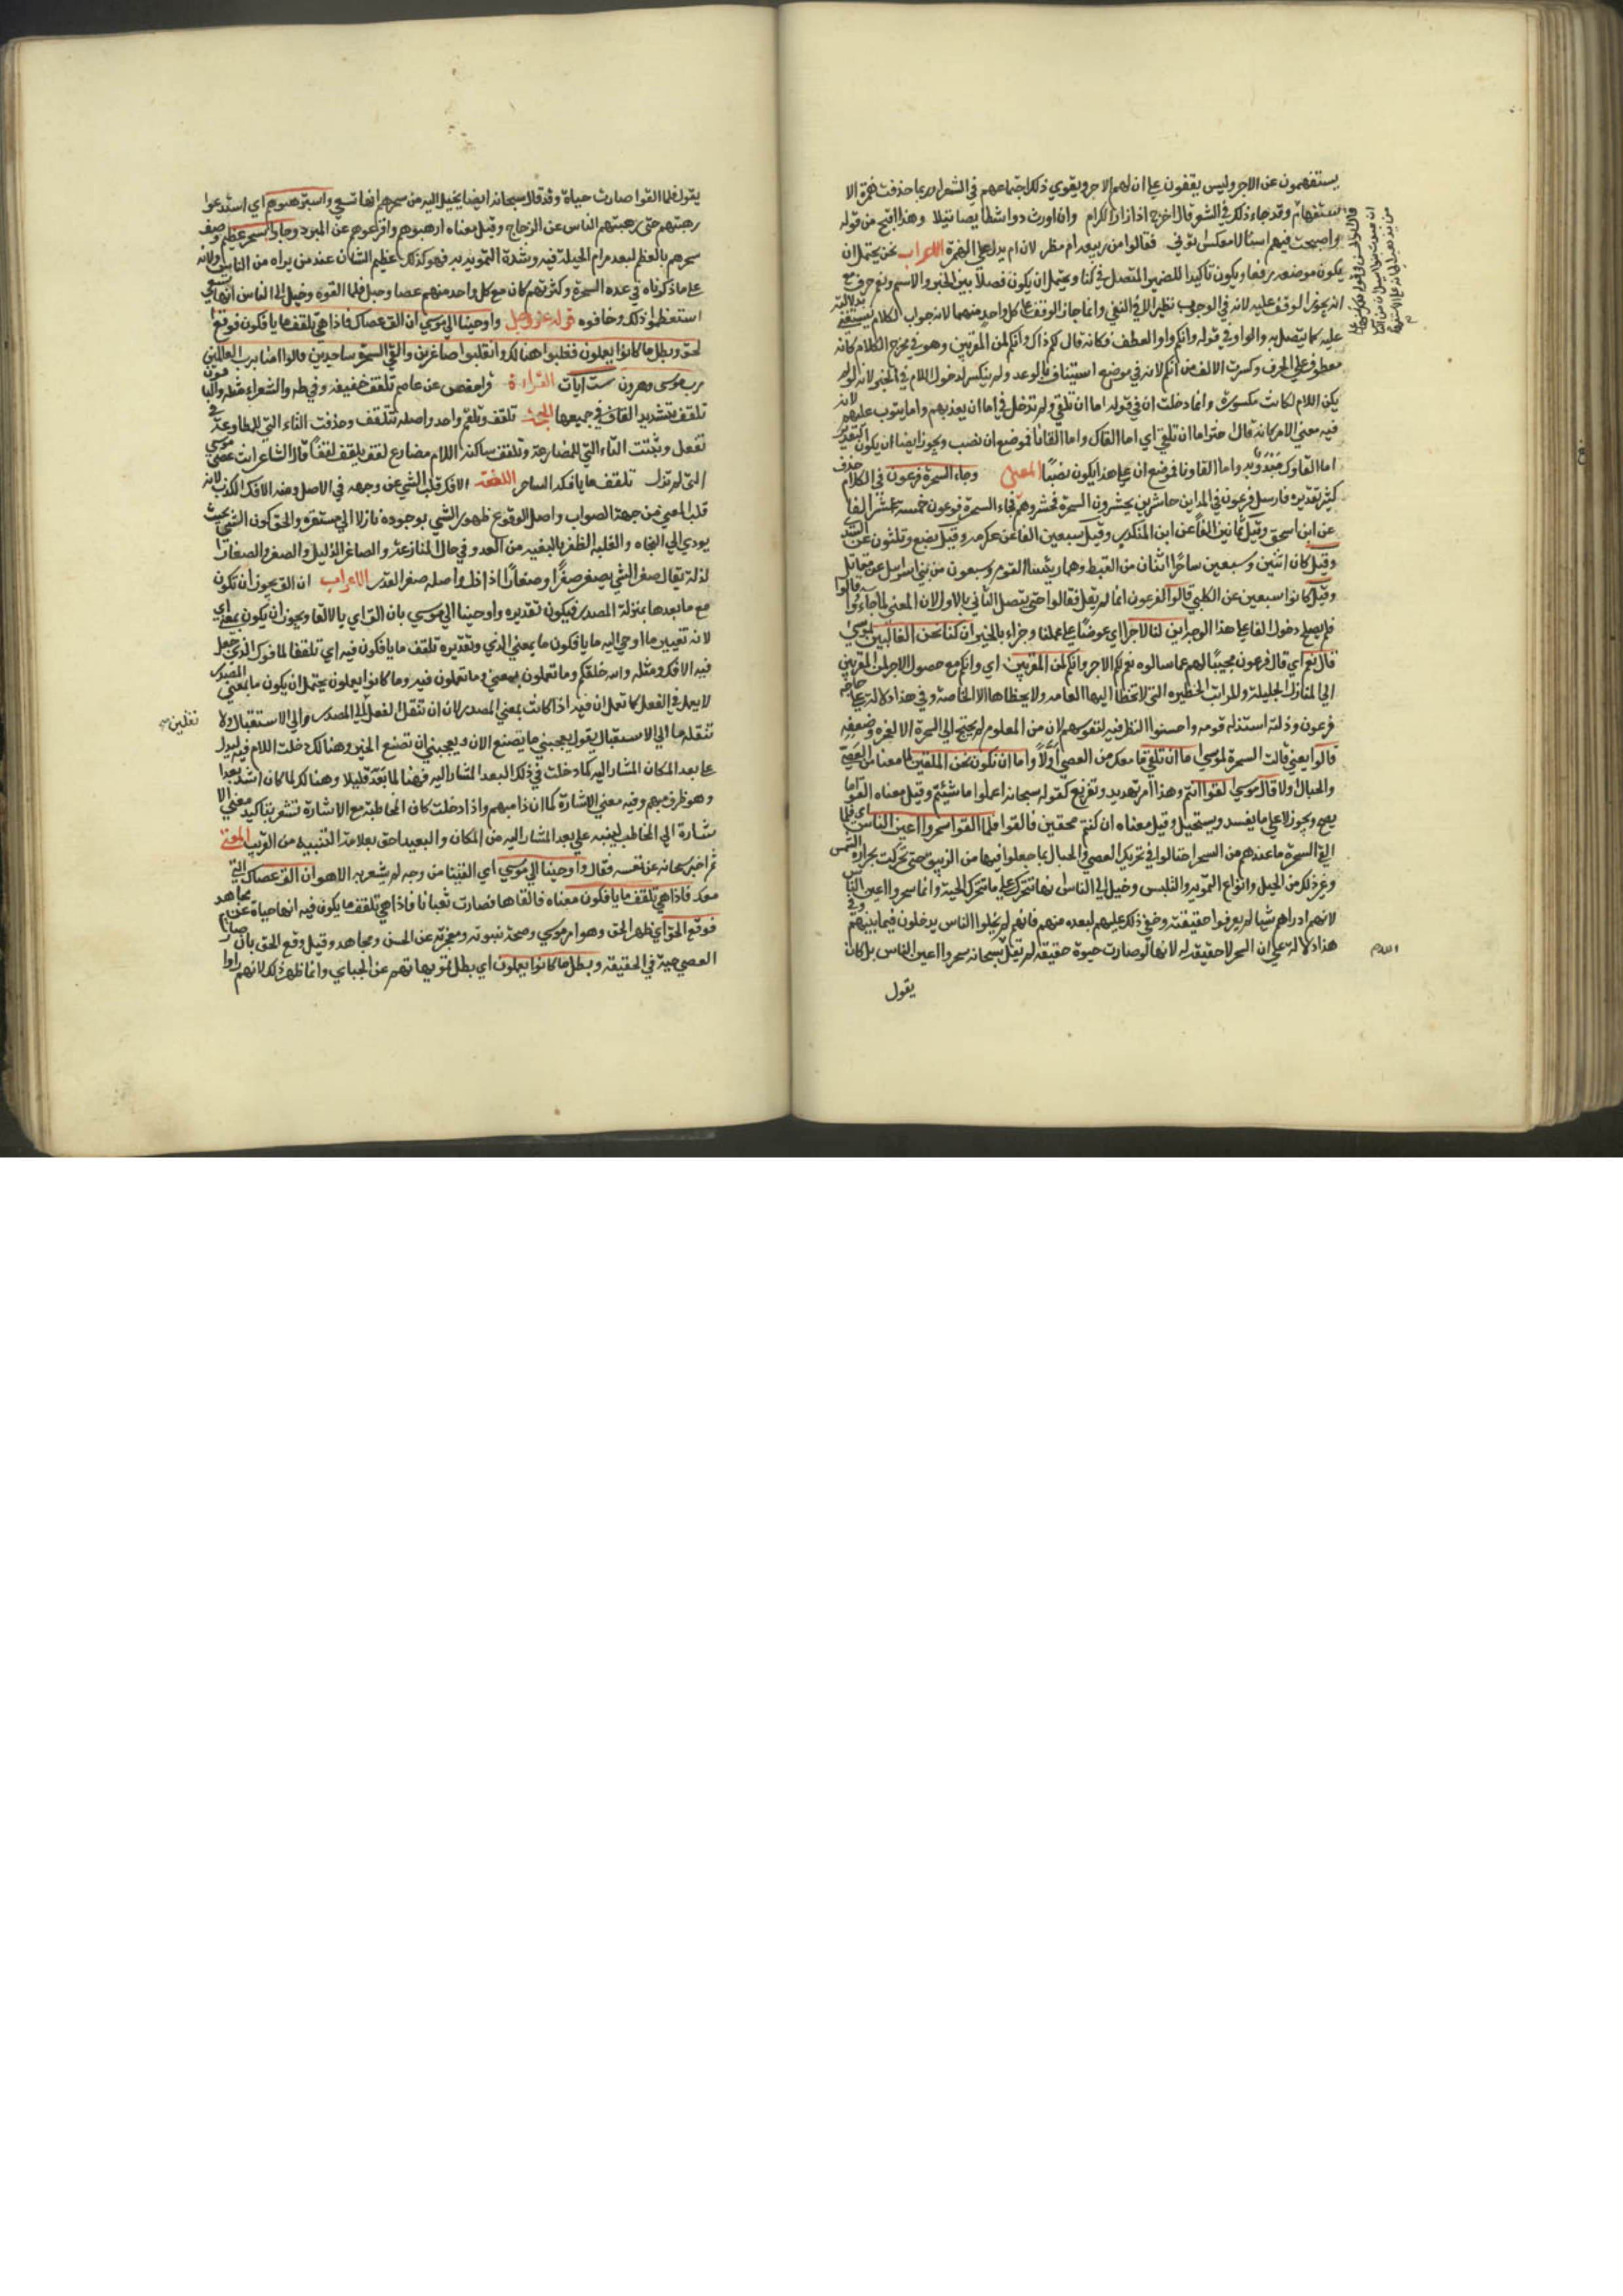 يستفهمون عن الاجر وليس يقفون علي ان لهم الاجر ويقوي ذلك اجتماعهم في الشعراء وربما حذفت همزة الا
ستفهام وقد جاء ذلك في الشعر قال افرح اذ ارزا الكرام وان اورث ذودا شطايصا نبلا وهذا اقبح من قوله
واصبحت فيهم امنا لا كمعشر اتوني فقالوا من ربيعه ام مضر لان ام يدل علي الهمزة الاعراب نحن يحتمل ان
يكون موضعه رفعا ويكون تاكيدا للضمير المتصل في كنا ويحتمل ان يكون فصلا بين الخبر والاسم ونعم حرف مع
انه يجوز الوقف عليه لانه في الوجوب نظير لا في النفي وانما جاز الوقف علي كل واحد منهما لانه جواب الكلام يستغني بدلالته
عليه كما يتصل به والواو في قوله وانكم واو العطف فكانه قال لكم ذاك وانكم لمن المقربين وهو في مخرج الكلام كانه
معطوف علي الحرف وكسرت الالف من انكم لانه في موضع استيناف بالوعد ولم ينكسر لدخول اللام في الخبر لانه لو لم
يكن اللام لكانت مكسورة وانما دخلت ان في قوله اما ان تلقي ولم تدخل في اما ان يعذبهم واما يتوب عليهم لانه
فيه معني الامر كانه قال اختر اما ان تلقي اي اما القاك واما القانا فموضع ان نصب ويجوز ايضا ان يكون التقدير
اما القاوك مبدو به واما القاونا فموضع ان علي هذا يكون نصبا المعني وجاء السحرة فرعون في الكلام حذف
كثير تقديره فارسل فرعون في المداين حاشرين يحشرون السحرة فحشروهم فجاء السحرة فرعون خمسة عشر الفا
عن ابن اسحق وقيل ثمانين الفا عن ابن المنكدر وقيل سبعين الفا عن عكرمه وقيل بضع وثلثون عن السدي
وقيل كان اثنين وسبعين ساحرا اثنان من القبط وهما رئيسا القوم وسبعون من بني اسرايل عن مقاتل
وقيل كانوا سبعين عن الكلبي قالوا لفرعون انما لم يقل فقالوا حتي يتصل الثاني بالاول لان المعني لما جاءوا قالوا
فلم يصلح دخول الفا علي هذا الوجه اين لنا لاجرا اي عوضا علي عملنا وجزاء بالخير ان كنا نحن الغالبين لموسي
قال نعم اي قال فرعون مجيبا لهم عما سالوه نعم لكم الاجر وانكم لمن المقربين اي وانكم مع حصول الاجر لمن المقربين
الي المنازل الجليلة والمراتب الخطيره التي لا تخطا اليها العامه ولا يحظا بها الا الخاصة وفي هذا دلاله علي حاجه
فرعون وذلته استذله قومه واحسنوا النظر فيه لنفوسهم لان من المعلوم لم يحتج الي السحرة الا لعجزه وضعفه
قالوا يعني قالت السحرة لموسي اما ان تلقي ما معك من العصي اولا واما ان نكون نحن الملقين لما معنا من العصي
والحبال اولا قال موسي القوا انتم وهذا امر تهديد وتقريع كقوله سبحانه اعملوا ما شئتم وقيل معناه القوا ما
يصح ويجوز لا علي ما يفسد ويستحيل وقيل معناه ان كنتم محقين فالقوا فلما القوا سحروا اعين الناس اي فلما
القي السحرة ما عندهم من السحر احتالوا في تحريك العصي والحبال بما جعلوا فيها من الزيبق حتي تحركت بحرارة الشمس
وغير ذلك من الحيل وانواع التمويه والتلبيس وخيل الي الناس انها تتحرك علي ما تتحرك الحية وانما سحروا اعين الناس
لانهم اروهم شيا لم يعرفوا حقيقته وخفي ذلك عليهم لبعده منهم فانهم لم يخلوا الناس يدخلون فيما بينهم وفي
هذا دلالة علي ان السحر لا حقيقة له لانها لو صارت حيوة حقيقة لم يقل سبحانه سحروا اعين الناس بل كان
اللام
يقول
يقول فلما القوا صارت حياة وقد قال سبحانه ايضا يخيل اليه من سحرهم انها تسعي واسترهبوهم اي استدعوا
رهبتهم حتي رهبتهم الناس عن الزجاج وقيل معناه ارهبوهم وافزعوهم عن المبرد وجاوا بسحر عظيم وصف
سحرهم بالعظم لبعد مرام الحيلة فيه وشدة التمويه به فهو كذلك عظيم الشان عند من يراه من الناس ولانه
علي ما ذكرناه في عده السحرة وكثرتهم كان مع كل واحد منهم عصا وحبل فلما القوه وخيل الي الناس انها تسعي
استعظموا ذلك وخافوه قوله عز وجل واوحينا الي موسي ان الق عصاك فاذا هي تلقف ما يافكون فوقع ا
لحق وبطل ما كانوا يعملون فغلبوا هنالك وانقلبوا صاغرين والقي السحرة ساجدين قالوا امنا برب العالمين
رب موسي وهرون ست ايات القراءة قرا حفص عن عاصم تلقف خفيفه وفي طه والشعراء مثله والباقون
تلقف بتشديد القاف في جميعها الحجة تلقف وتلقم واحد واصله تتلقف وحذفت التاء التي للمطاوعة في
تفعل وثبتت التاء التي للمضارعة وتلقف ساكنة اللام مضارع لقف يلقف لقفا قال الشاعر انت عصي موسي
التي لم تزل تلقف ما يافكه الساحر اللغة الافك قلب الشي عن وجهه في الاصل ومنه الافك الكذب لانه
قلب المعني عن جهة الصواب واصل الوقوع ظهور الشي بوجوده نازلا الي مستقره والحق كون الشي بحيث
يودي الي النجاه والغلبة الظفر بالبغيه من العدو في حال المنازعة والصاغر الذليل والصغر والصغار ا
لذلة يقال صغر الشي يصغر صغرا وصغارا اذا ذل واصله صغر القدر الاعراب ان الق يجوز ان تكون
مع ما بعدها بمنزلة المصدر فيكون تقديره واوحينا الي موسي بان الق اي بالالقا ويجوز ان يكون بمعني اي
لانه تفسير ما اوحي اليه ما يافكون ما بمعني الذي وتقديره تلقف ما يافكون فيه اي تلقف المافوك الذي حل
فيه الافك ومثله والله خلقكم وما تعملون بمعني وما تعملون فيه وما كانوا يعملون يحتمل ان يكون ما بمعني المصدر
لا يعمل في الفعل كما تعمل ان فيه اذا كانت بمعني المصدر لان ان تنقل الفعل الي المصدر والي الاستقبال ولا
تنقله ما الي الاستقبال يقول يعجبني ما يصنع الان ويعجبني ان تصنع الخير وهنالك دخلت اللام فيه ليدل
علي بعد المكان المشار اليه كما دخلت في ذلك لبعد المشار اليه فهنا لما بعد قليلا وهنالك لما كان اشد بعدا
وهو ظرف مبهم وفيه معني الاشارة كما ان ذا مبهم واذا دخلت كاف المخاطبة مع الاشارة تشعر بتاكيد معني الا
شارة الي المخاطب ليتنبه علي بعد المشار اليه من المكان والبعيد احق بعلامة التنبيه من القريب المعني
ثم اخبر سبحانه عن نفسه فقال واوحينا الي موسي اي القينا من وجه لم يشعر به الا هو ان الق عصاك التي
معك فاذا هي تلقف ما يافكون معناه فالقاها فصارت ثعبانا فاذا هي تلقف ما يكون فيه انها حياة عن مجاهد
فوقع الحق اي ظهر الحق وهو امر موسي وصحة نبوته ومعجزته عن الحسن ومجاهد وقيل وقع الحق بان صارت
العصي حية في الحقيقة وبطل ما كانوا يعملون اي بطل تمويهاتهم عن الجباي وانما ظهر ذلك لانهم راوا